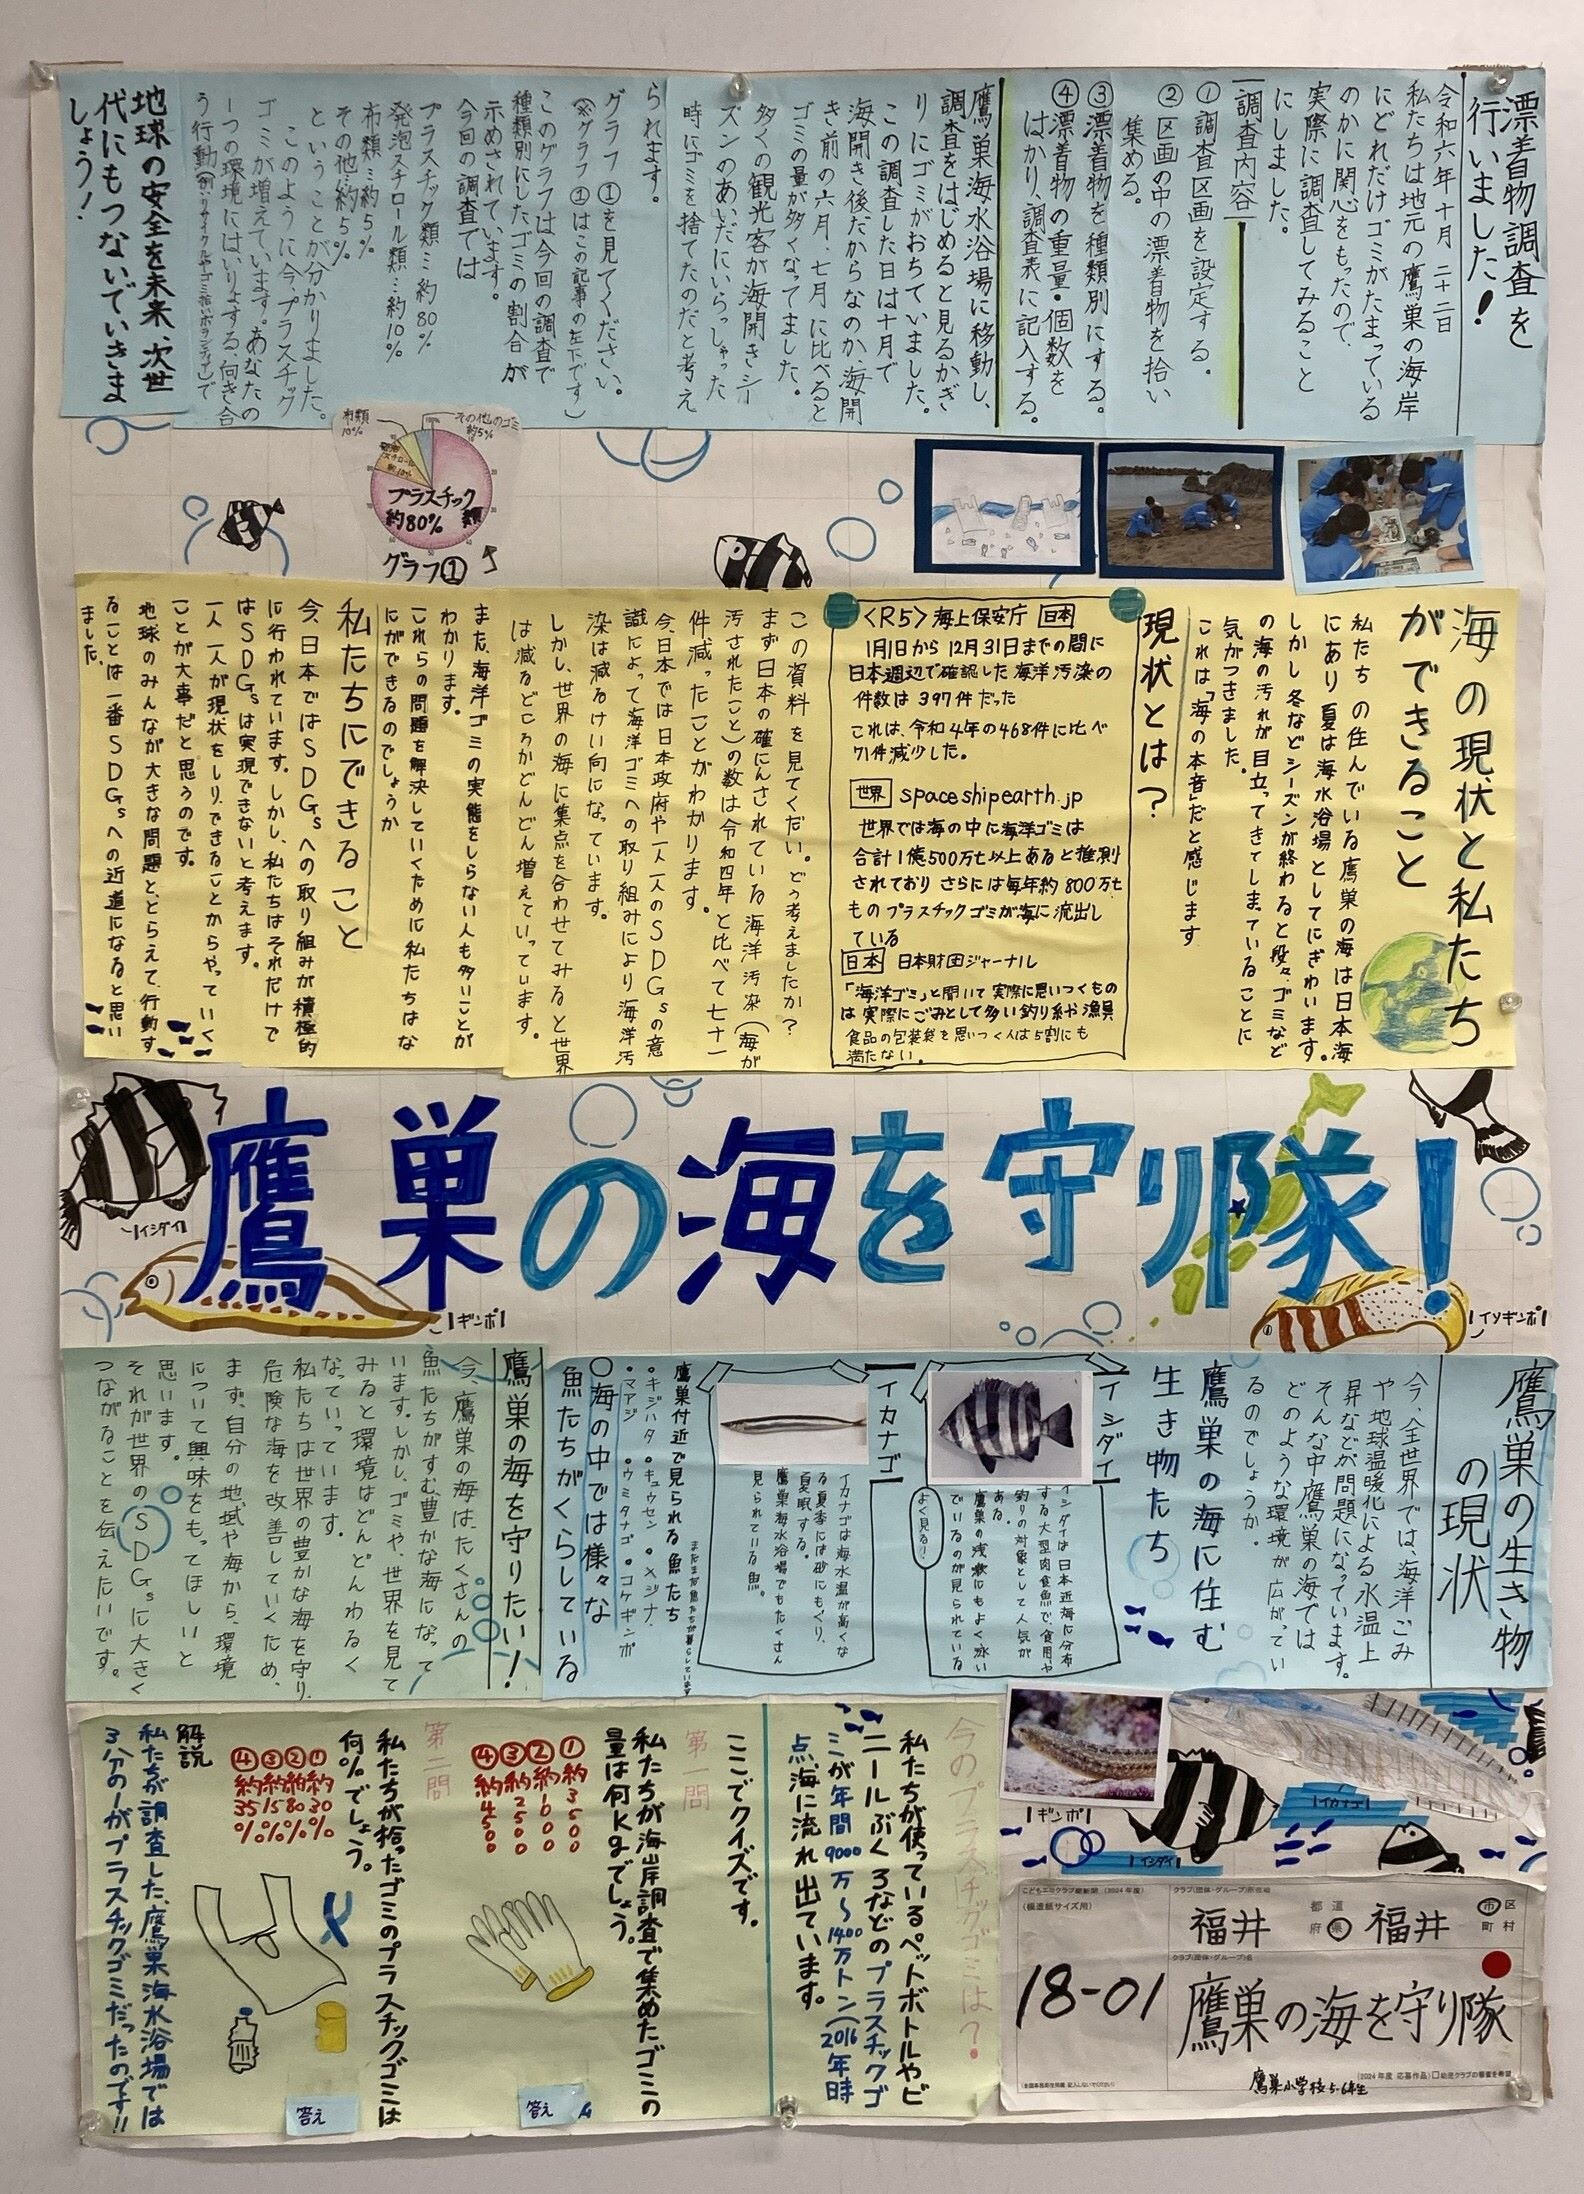 漂着物調査を
行いました！
令和六年十月二十二日
私たちは地元の鷹巣の海岸
にどれだけゴミがたまっている
のかに関心をもったので、
実際に調査してみること
にしました。
調査内容
①調査区画を設定する。
②区画の中の漂着物を拾い
集める。
③漂着物を種類別にする。
④漂着物の重量・個数を
はかり、調査表に記入する。
鷹巣海水浴場に移動し、
調査をはじめると見るかぎ
りにゴミがおちていました。
この調査した日は十月で
海開き後だからなのか、海開
き前の六月、七月に比べると
ゴミの量が多くなってました。
多くの観光客が海開きシー
ズンのあいだにいらっしゃった
時にゴミを捨てたのだと考え
られます。
グラフ①を見てください。
(※グラフ①はこの記事の左下です)
このグラフは今回の調査で
種類別にしたゴミの割合が
示めされています。
今回の調査では
プラスチック類…約80%
発泡スチロール類…約10%
布類…約5%
その他…約5%
ということが分かりました。
このように今、プラスチック
ゴミが増えています。あなたの
一つの環境にはいりょする、向き合
う行動(例:リサイクルやゴミ拾いボランティア)で
地球の安全を未来、次世
代にもつないでいきま
しょう！
布類
10%
その他のゴミ
約5%
発泡
スチロール
約10%
プラスチック
約80% 類
グラフ①
海の現状と私たち
ができること
私たちの住んでいる鷹巣の海は日本海
にあり夏は海水浴場としてにぎわいます。
しかし冬などシーズンが終わると段々、ゴミなど
の海の汚れが目立ってきてしまっていることに
気がつきました。
これは「海の本音」だと感じます
現状とは？
<R5>海上保安庁 日本
1月1日から12月31日までの間に
日本週辺で確認した海洋汚染の
件数は397件だった
これは、令和4年の468件に比べ
71件減少した。
世界 spaceshipearth.jp
世界では海の中に海洋ゴミは
合計1億500万t以上あると推測
されており さらには毎年約800万t
ものプラスチックゴミが海に流出し
ている
日本 日本財団ジャーナル
「海洋ゴミ」と聞いて実際に思いつくもの
は実際にごみとして多い釣り糸や漁具
食品の包装袋を思いつく人は5割にも
満たない。
この資料を見てください。どう考えましたか？
まず日本の確にんされている海洋汚染(海が
汚されたこと)の数は令和四年と比べて七十一
件減ったことがわかります。
今、日本では日本政府や一人一人のSDGsの意
識によって海洋ゴミへの取り組みにより海洋汚
染は減るけい向になっています。
しかし、世界の海に集点を合わせてみると世界
は減るどころかどんどん増えていっています。
また、海洋ゴミの実態をしらない人も多いことが
わかります。
これらの問題を解決していくために私たちはな
にができるのでしょうか
私たちにできること
今、日本ではSDGsへの取り組みが積極的
に行われています。しかし、私たちはそれだけで
はSDGsは実現できないと考えます。
一人一人が現状をしり、できることからやっていく
ことが大事だと思うのです。
地球のみんなが大きな問題と、とらえて、行動す
ることは一番SDGsへの近道になると思い
ました。
鷹巣の海を守り隊！
イシダイ
ギンポ
イソギンポ
鷹巣の生き物
の現状
今、全世界では、海洋ごみ
や地球温暖化による水温上
昇などが問題になっています。
そんな中鷹巣の海では
どのような環境が広がってい
るのでしょうか。
鷹巣の海に住む
生き物たち
イシダイ
イシダイは日本近海に分布
する大型肉食魚で食用や
釣りの対象として人気が
ある。
鷹巣の浅瀬にもよく泳い
でいるのが見られている
よく見る！
イカナゴ
イカナゴは海水温が高くな
る夏季には砂にもぐり、
夏眠する。
鷹巣海水浴場でもたくさん
見られている魚。
鷹巣付近で見られる魚たち
・キジハタ ・キュウセン ・メジナ
・マアジ ・ウミタナゴ ・コケギンポ
まだまだ魚たちが暮らしています
○海の中では様々な
魚たちがくらしている
鷹巣の海を守りたい！
今、鷹巣の海は、たくさんの
魚たちがすむ、豊かな海になって
います。しかし、ゴミや、世界を見て
みると環境はどんどんわるく
なっていっています。
私たちは世界の豊かな海を守り、
危険な海を改善していくため、
まず、自分の地域や海から、環境
について興味をもってほしいと
思います。
それが世界のSDGsに大きく
つながることを伝えたいです。
ギンポ
イシダイ
イカナゴ
今のプラスチックゴミは？
私たちが使っているペットボトルやビ
ニールぶくろなどのプラスチックゴ
ミが年間9000万〜1400万トン(2016年時
点、海に流れ出ています。
ここでクイズです。
第一問
私たちが海岸調査で集めたゴミの
量は何kgでしょう。
①約3500
②約1600
③約2500
④約4500
答え
第二問
私たちが拾ったゴミのプラスチックゴミは
何%でしょう。
①約30%
②約80%
③約15%
④約35%
答え
解説
私たちが調査した、鷹巣海水浴場では
3分の1がプラスチックゴミだったのです!!
こどもエコクラブ壁新聞（2024年度）
(模造紙サイズ用)
クラブ(団体・グループ)所在地
福井 都道府県 福井 市区町村
18-01
クラブ(団体・グループ)名
鷹巣の海を守り隊
鷹巣小学校5・6年生